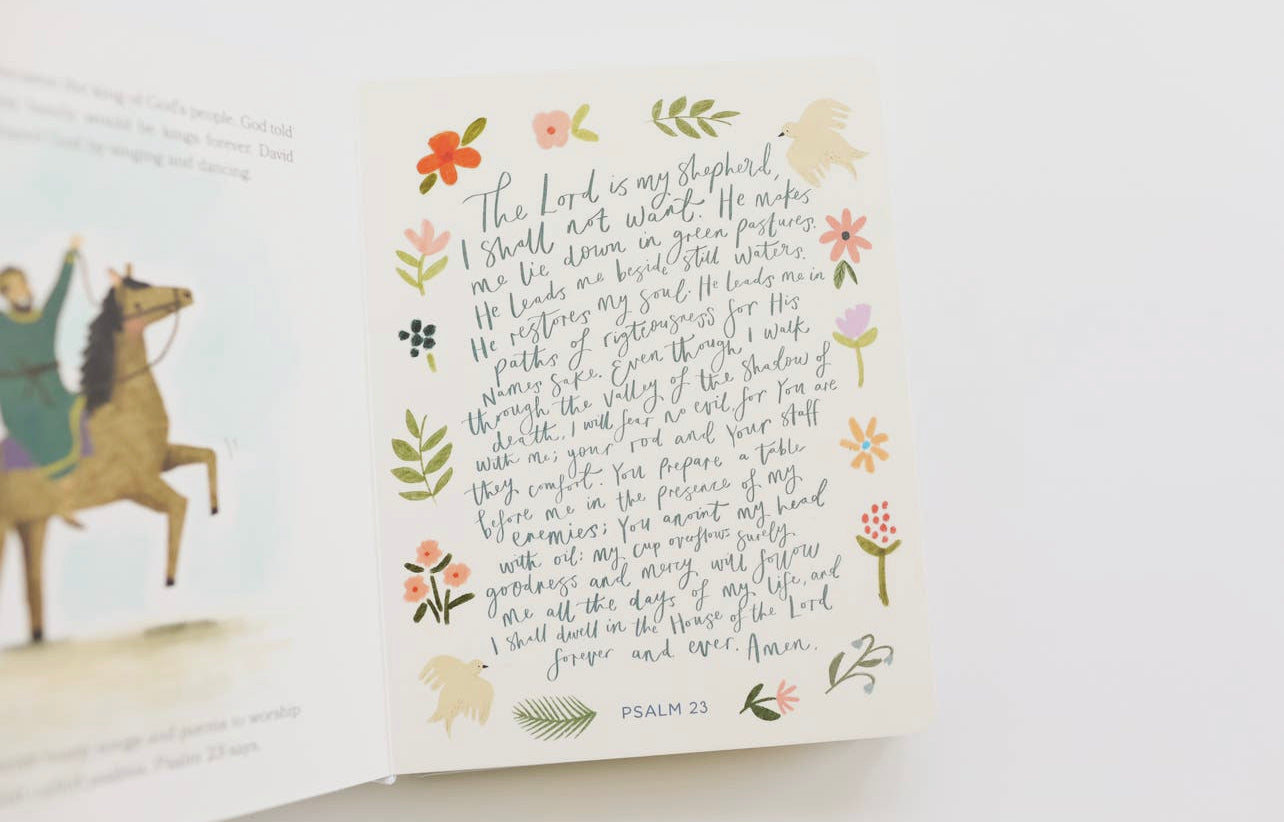 the king of God's people. God told
family would be kings forever. David
God by singing and dancing.
songs and poems to worship
called psalms. Psalm 23 says,
The Lord is my shepherd,
I shall not want. He makes
me lie down in green pastures.
He leads me beside still waters.
He restores my soul. He leads me in
paths of rigteousness for His
Names Sake. Even though, I walk
through the valley of the shadow of
death, I will fear no evil, for You are
with me; your rod and Your staff
they comfort. You prepare a table
before me in the presence of my
enemies; You anoint my head
with oil: my cup overflows surely
goodness and mercy will follow
me all the days of my life, and
I shall dwell in the House of the Lord
forever and ever. Amen.
PSALM 23